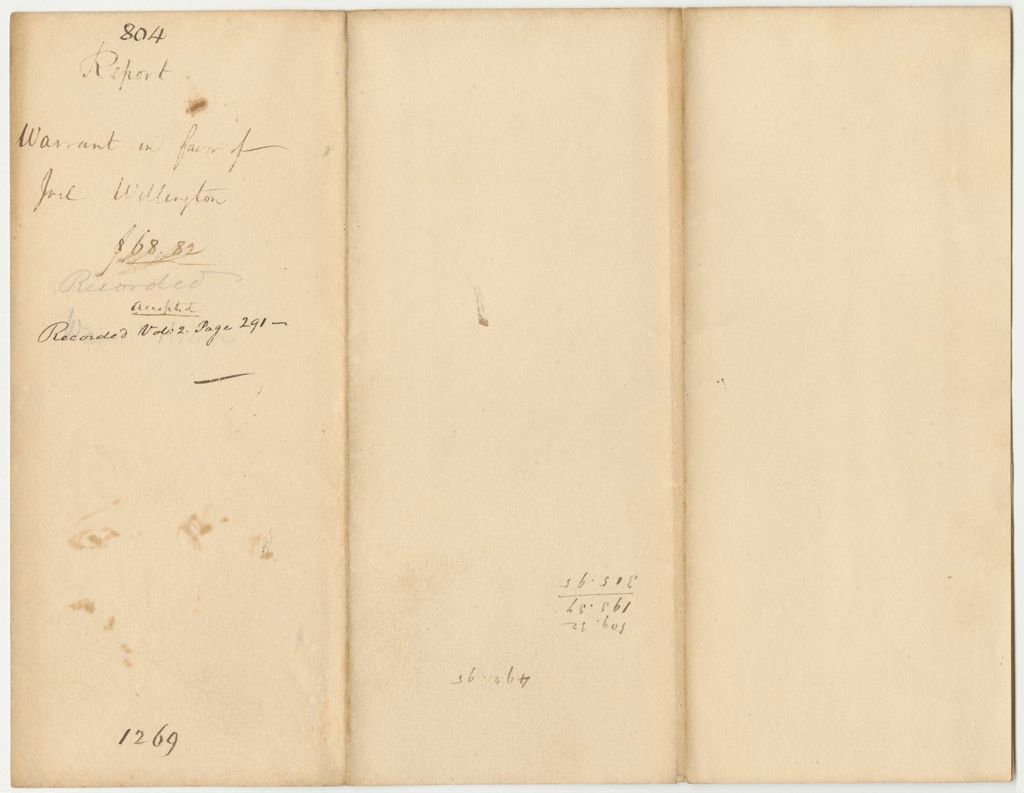 804
Report
Warrant in favor of
Joel Wellington
$68.82
Recorded
accepted
Recorded Vol: 2. Page 291 —
1269
492.95
509.32
193.37
315.95